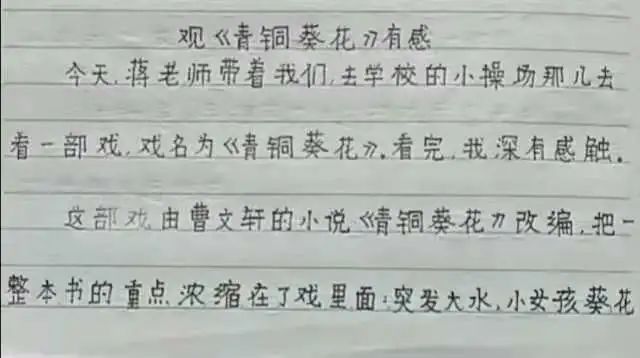 观《青铜葵花》有感
今天,蒋老师带着我们,去学校的小操场那儿去
看一部戏,戏名为《青铜葵花》。看完,我深有感触。
这部戏由曹文轩的小说《青铜葵花》改编,把一
整本书的重点浓缩在了戏里面:突发大水,小女孩葵花